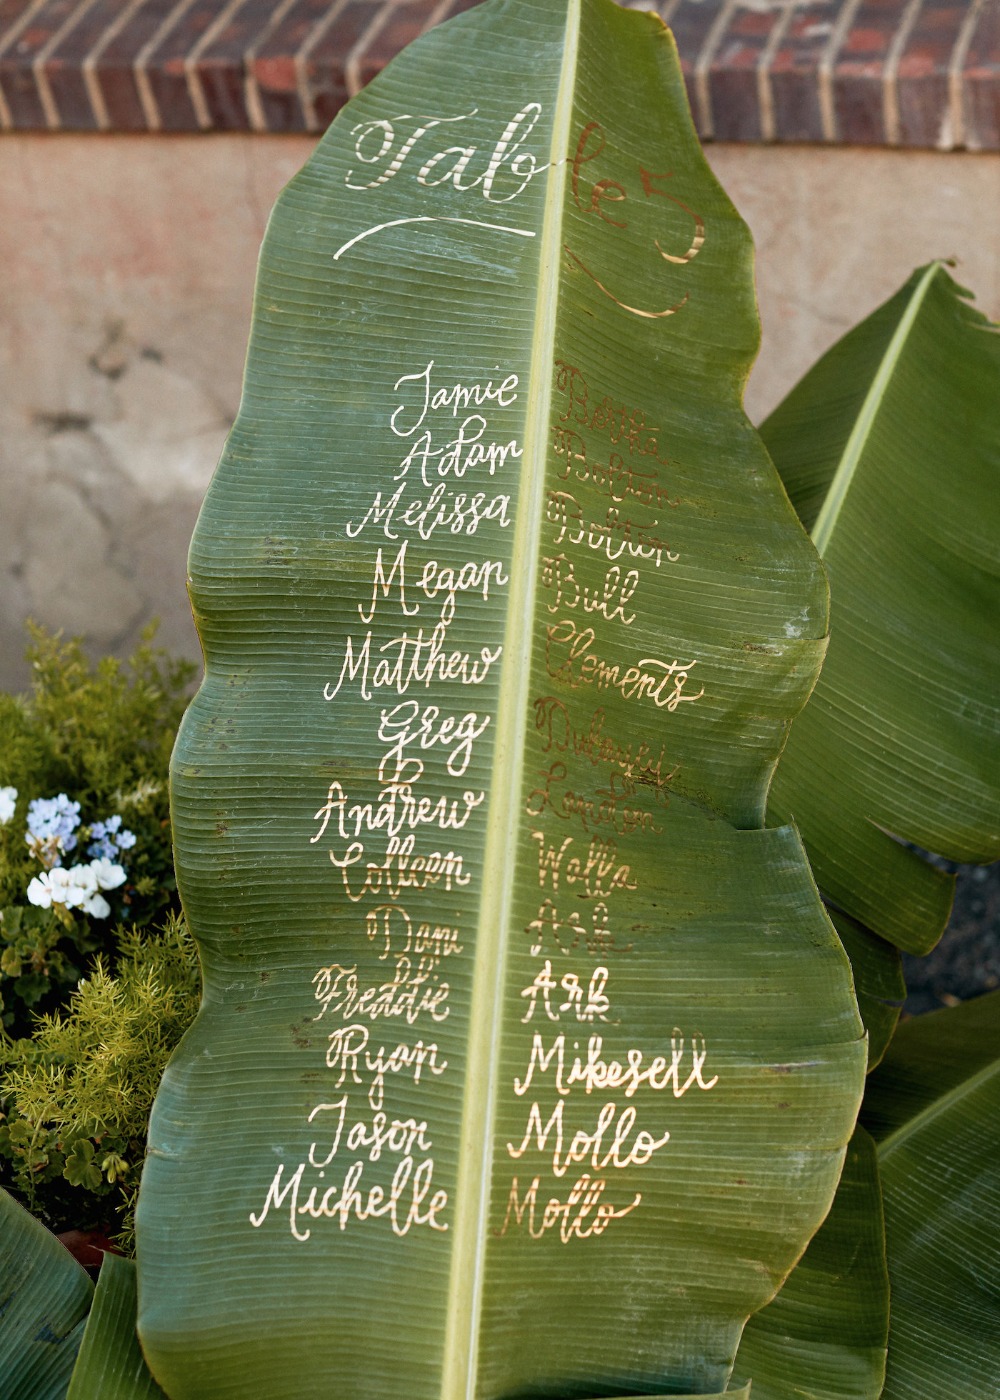 Table 5
Jamie
Adam Bolton
Melissa Bolton
Megan Bull
Matthew Clements
Greg
Andrew
Colleen Walla
Dani Ark
Freddie Ark
Ryan Mikesell
Jason Mollo
Michelle Mollo